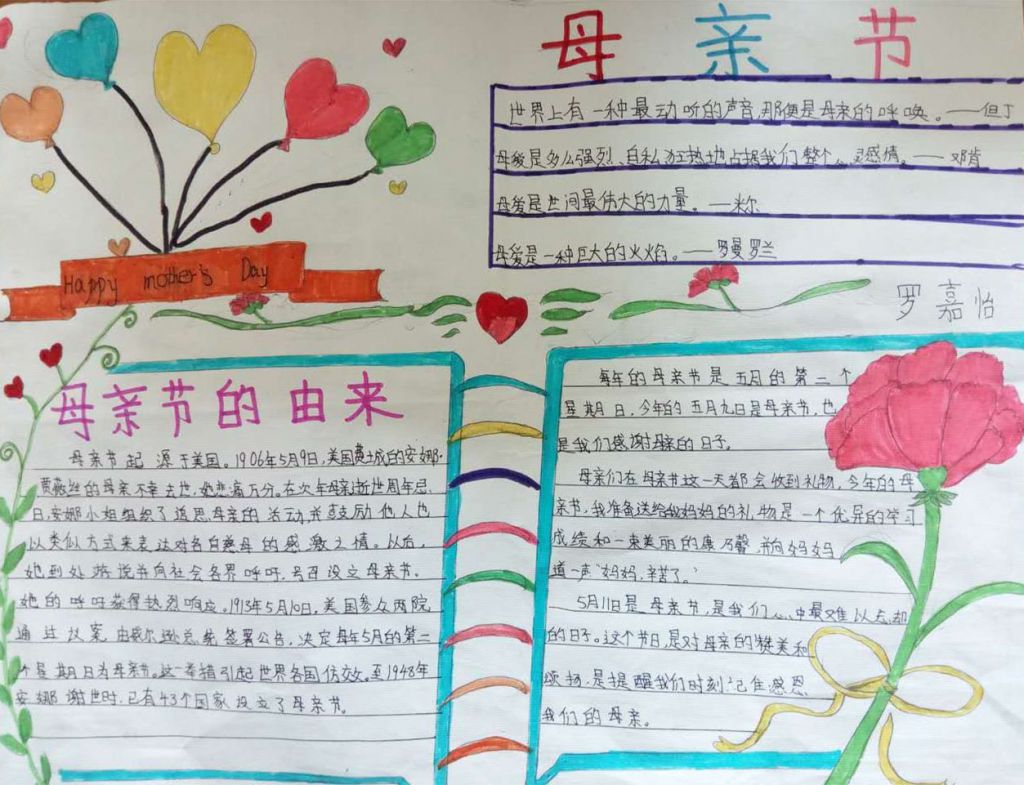 母亲节
世界上有一种最动听的声音,那便是母亲的呼唤。——但丁
母爱是多么强烈、自私、狂热地占据我们整个心灵感情。——邓肯
母爱是世间最伟大的力量。—米尔
母爱是一种巨大的火焰。——罗曼罗兰
Happy mother's Day
罗嘉怡
母亲节的由来
母亲节起源于美国。1906年5月9日,美国费城的安娜·
贾薇丝的母亲不幸去世,她悲痛万分。在次年母亲逝世周年忌
日,安娜小姐组织了追思母亲的活动,并鼓励他人也
以类似方式来表达对各自慈母的感激之情。以后,
她到处游说并向社会各界呼吁,号召设立母亲节。
她的呼吁获得热烈响应。1913年5月10日,美国参众两院
通过议案,由威尔逊总统签署公告,决定每年5月的第二
个星期日为母亲节。这一举措引起世界各国仿效。至1948年
安娜谢世时,已有43个国家设立了母亲节。
每年的母亲节是五月的第二个
星期日,今年的五月九日是母亲节,也
是我们感谢母亲的日子。
母亲们在母亲节这一天都会收到礼物,今年的母
亲节,我准备送给我妈妈的礼物是一个优异的学习
成绩和一束美丽的康乃馨,并向妈妈
道一声“妈妈,辛苦了。”
5月11日是母亲节,是我们心中最难以忘却
的日子。这个节日,是对母亲的赞美和
颂扬,是提醒我们时刻记住感恩
我们的母亲。